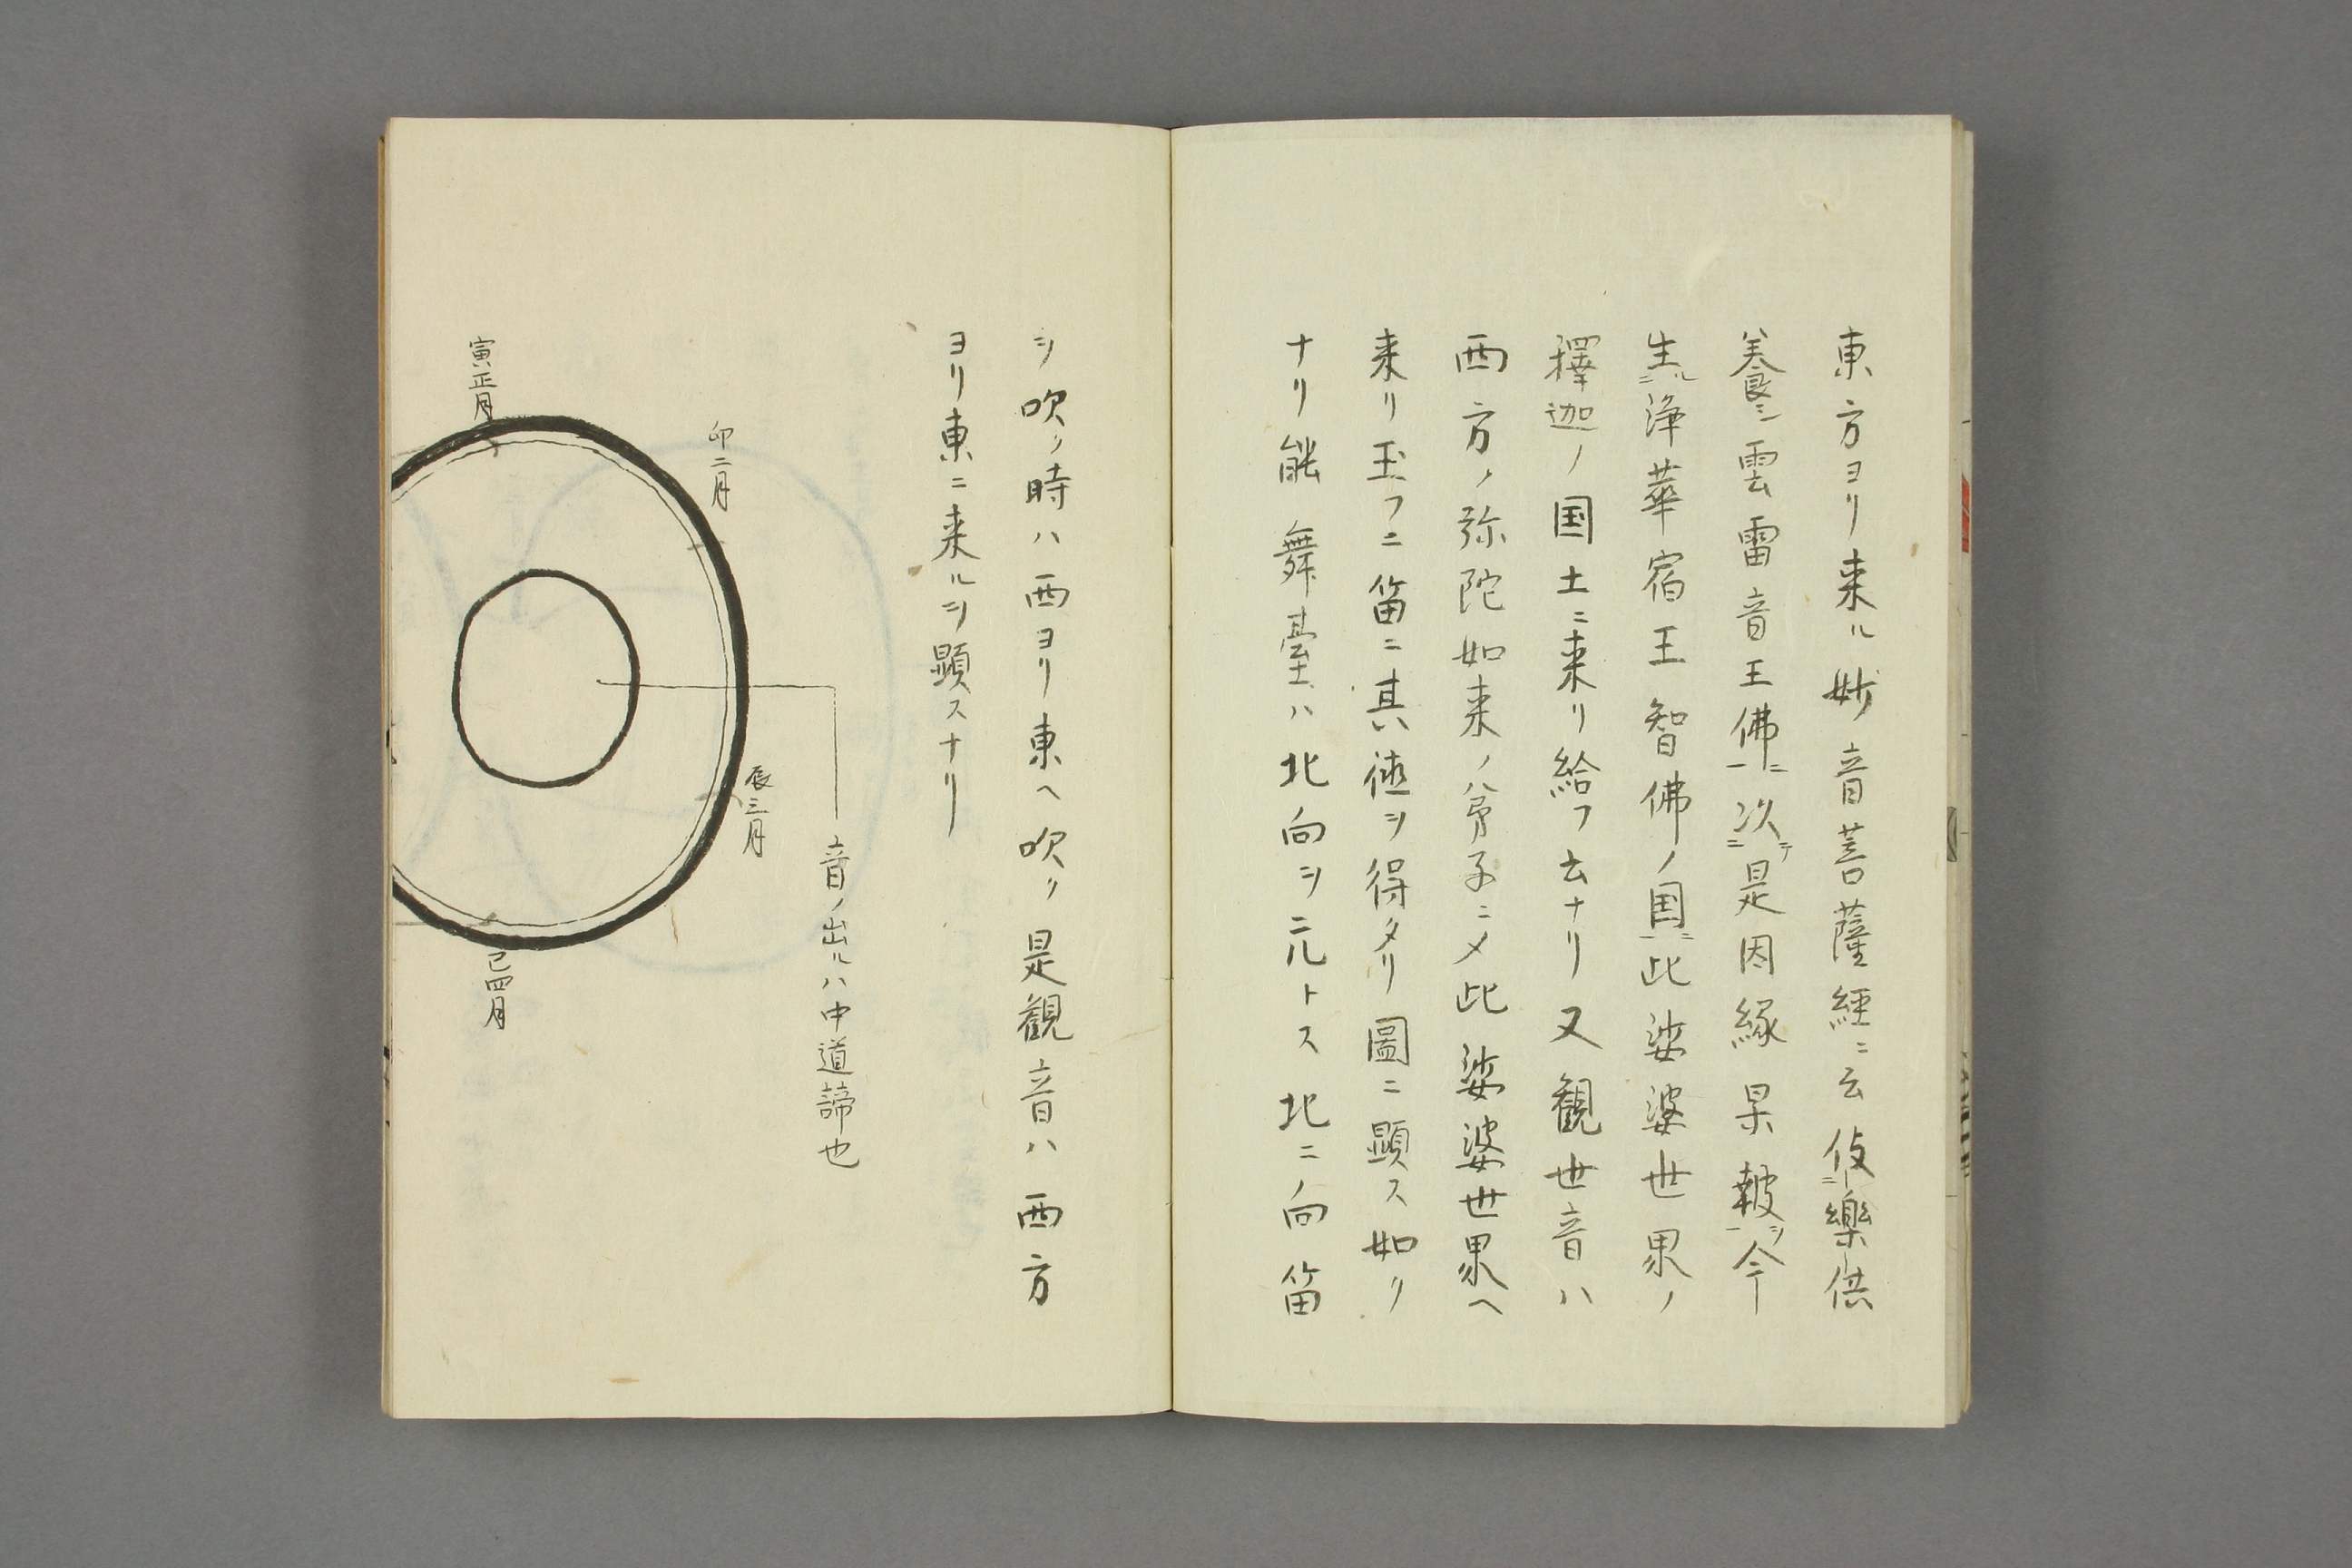 東方ヨリ来ル妙音菩薩経ニ云伎樂供
養シ雲雷音王佛ニ次テ是因縁果報ヲ今
生ル浄華宿王智佛ノ国ニ此娑婆世界ノ
釋迦ノ国土ニ来リ給フ去ナリ又観世音ハ
西方ノ弥陀如来ノ八男子ニメ此娑婆世界ヘ
来リ玉フニ笛ニ其徳ヲ得タリ圖ニ顕ス如リ
ナリ能舞臺ハ北向ヲ元トス北ニ向笛
ヲ吹ク時ハ西ヨリ東ヘ吹ク是観音ハ西方
ヨリ東ニ来ルヲ顕スナリ
音ノ出ルハ中道諦也
辰三月
卯二月
巳四月
寅正月